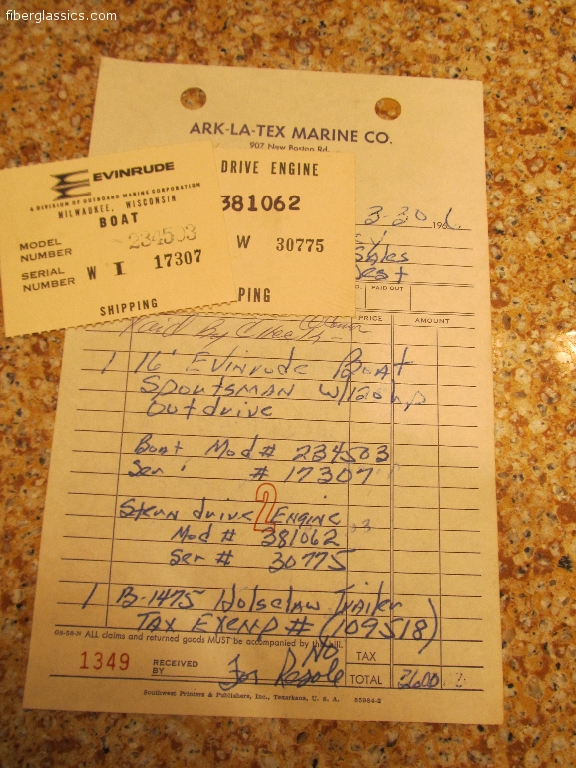 fiberglassics.com
ARK-LA-TEX MARINE CO.
907 New Boston Rd.
EVINRUDE
A DIVISION OF OUTBOARD MARINE CORPORATION
MILWAUKEE, WISCONSIN
BOAT
MODEL NUMBER 234503
SERIAL NUMBER W I 17307
SHIPPING
DRIVE ENGINE
381062
W 30775
PING
3-30 196
Sales
PAID OUT
PRICE AMOUNT
Paid By Check
1 16' Evinrude Boat
Sportsman w/120hp
Outdrive
Boat Mod# 234503
Ser # 17307
Stern drive Engine
2
Mod# 381062
Ser # 30775
1 B-1475 Holsclaw Trailer
TAX Exemp # (109518)
GS-56-N ALL claims and returned goods MUST be accompanied by this bill.
No
TAX
1349 RECEIVED BY For Resale TOTAL
Southwest Printers & Publishers, Inc., Texarkana, U. S. A. 55984-2